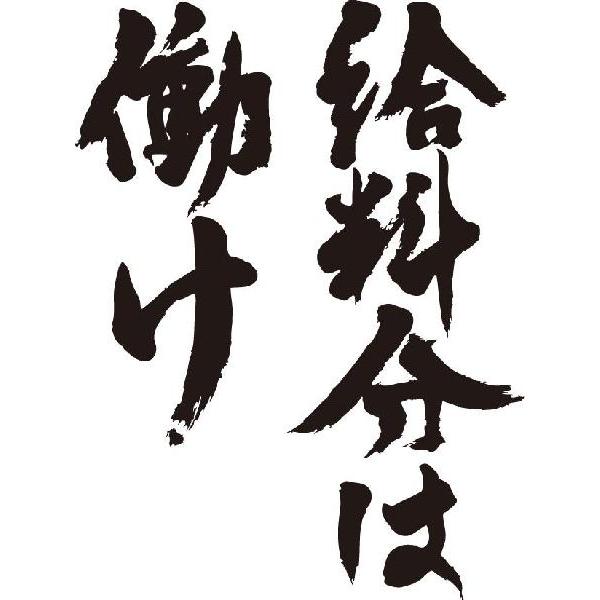 給料分は
働け